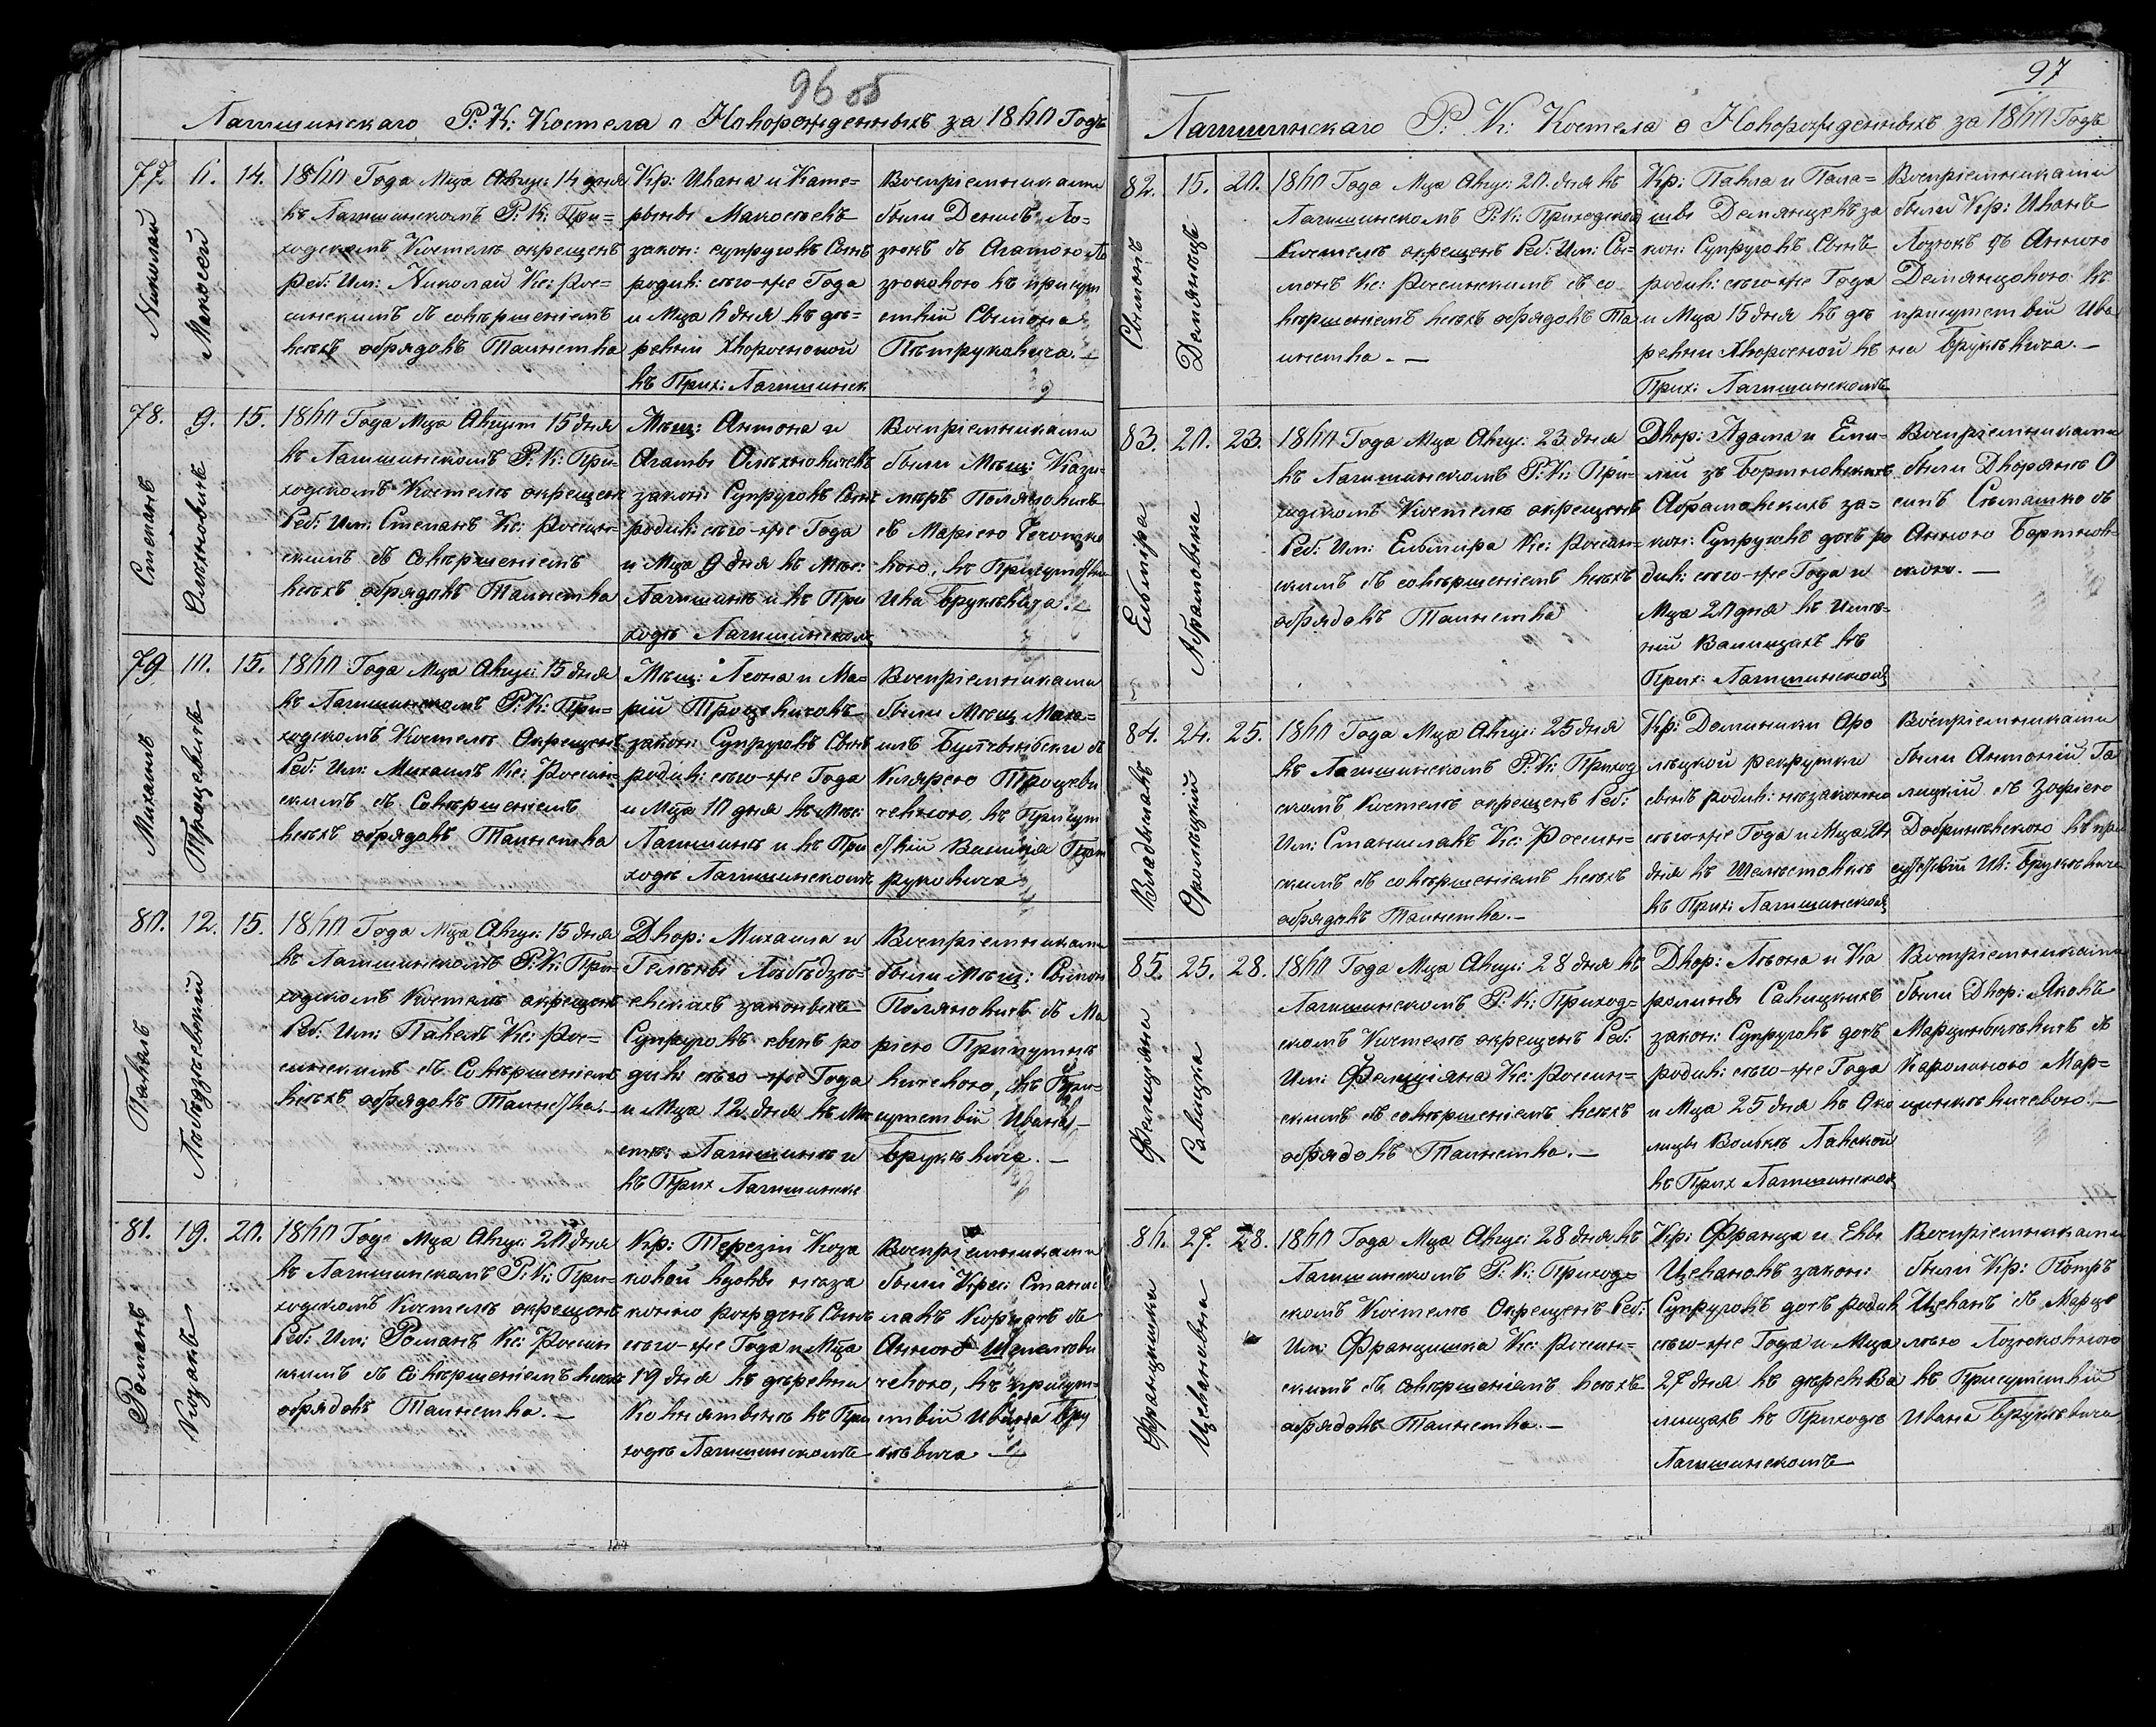 96 об
Лагишинскаго Р: К: Костела о Новорожденныхъ за 1860 Годъ
77. 6. 14.
Николай
Макосей
1860 Года Мца Авгус: 14 дня
въ Лагишинскомъ Р: К: При=
ходскомъ Костелѣ окрещенъ
Реб: Им: Николай Кс: Рос=
синскимъ съ совѣршеніемъ
всѣхъ обрядовъ Таинства
Кр: Ивана и Кате=
рыны Макосѣевъ
закон: супруговъ Сынъ
родив: сѣго-же Года
и Мца 6 дня въ дѣ=
ревни Хворосновой
въ Прих: Лагишинск
Воспріемниками
были Денисъ Ло=
зюкъ съ Агатою Ло
зюковою въ присут
ствіи Сымона
Пѣтруковича. —
78. 9. 15.
Стѣпанъ
Алѣхновичъ
1860 Года Мца Август 15 дня
въ Лагишинскомъ Р: К: При=
ходскомъ Костелѣ окрещенъ
Реб: Им: Степанъ Кс: Россин=
скимъ съ Совѣршеніемъ
всѣхъ обрядовъ Таинства
Мѣщ: Антона и
Агаты Олѣхновичевъ
закон: Супруговъ Сынъ
родив: сѣго-же Года
и Мца 9 дня въ Мѣс:
Лагишинѣ и въ При
ходѣ Лагишинскомъ
Воспріемниками
были Мѣщ: Кази=
мѣръ Поляновичъ
съ Маріею
вою, въ Присутствіи
Ива Бруквича. —
79. 10. 15.
Михаилъ
Троцевичъ
1860 Года Мца Авгус: 15 дня
въ Лагишинскомъ Р: К: При=
ходскомъ Костелѣ Окрещенъ
Реб: Им: Михаилъ Кс: Россин=
скимъ съ Совѣршеніемъ
всѣхъ обрядовъ Таинства
Мѣщ: Леона и Ма=
ріи Троцевичовъ
закон: Супруговъ Сынъ
родив: сѣго-же Года
и Мца 10 дня въ Мѣс:
Лагишинѣ и въ При
ходѣ Лагишинскомъ
Воспріемниками
были Мѣщ Миха=
илъ съ
Клярею Троцеви
чевною въ Присут
ствіи
руковича
80. 12. 15.
Павелъ
Лѣбѣдзѣвскій
1860 Года Мца Авгус: 15 дня
въ Лагишинскомъ Р: К: При=
ходскомъ Костелѣ окрещенъ
Реб: Им: Павелъ Кс: Рос=
синскимъ съ Совѣршеніемъ
всѣхъ обрядовъ Таинства. —
Двор: Михаила и
Гелены Лѣбѣдзѣ=
вскихъ законныхъ
Супруговъ сынъ ро
див: сѣго-же Года
и Мца 12 дня въ Мѣ
стѣ: Лагишинѣ и
въ Прих Лагишинск
Воспріемниками
были Мѣщ: Сымон
Поляновичъ съ Ма
ріею
вичевою, въ При=
сутствіи Ивана
Бруквича. —
81. 19. 20.
Романъ
Козакъ
1860 Года Мца Авгус: 20 дня
въ Лагишинскомъ Р: К: При=
ходскомъ Костелѣ окрещенъ
Реб: Им: Романъ Кс: Россин
скимъ съ Совѣршеніемъ всѣхъ
обрядовъ Таинства. —
Кр: Терезіи Коза
ковой вдовы нѣза
конно рожденъ Сынъ
сѣго-же Года и Мца
19 дня въ дѣревни
въ При
ходѣ Лагишинскомъ
Воспріемниками
были Крес: Станис
лавъ съ
Анною
чевою, въ присут=
ствіи Ивана Бру
квича —
97
Лагишинскаго Р: К: Костела о Новорожденныхъ за 1860 Годъ
82. 15. 20.
Сымонъ
Демянецъ
1860 Года Мца Авгус: 20. дня въ
Лагишинскомъ Р: К: Приходском
Костелѣ окрещенъ Реб: Им: Сы=
монъ Кс: Россинскимъ съ со
вѣршеніемъ всѣхъ обрядовъ Та
инства. —
Кр: Павла и Пала=
шки Демянцевъ за
кон: Супруговъ Сынъ
родив: сѣго-же Года
и Мца 15 дня въ дѣ
ревни Хворосной въ
Прих: Лагишинскомъ
Воспріемниками
были Кр: Иванъ
Лозюкъ съ Анною
Демянцовою въ
присутствіи Ива
на Бруквича. —
83. 20. 23.
Ельвира
Абрамовска
1860 Года Мца Авгус: 23 дня
въ Лагишинскомъ Р: К: При=
ходскомъ Костелѣ окрещенъ
Реб: Им: Ельвира Кс: Россин=
скимъ съ совѣршеніемъ всѣхъ
обрядовъ Таинства
Двор: Адама и Еми=
ліи зъ Бортновскихъ
Абрамовскихъ за=
кон: Супруговъ дочъ ро
див: сѣго-же Года и
Мца 20 дня въ Имѣ=
ніи Валищахъ въ
Прих: Лагишинскомъ
Воспріемниками
были Дворянѣ О
сипъ Сѣмашко съ
Анною Бортнов=
скою. —
84. 24. 25.
Владиславъ
Оролицкій
1860 Года Мца Авгус: 25 дня
въ Лагишинскомъ Р: К: Приход
скомъ Костелѣ окрещенъ Реб:
Им: Станиславъ Кс: Россин=
скимъ съ совѣршеніемъ всѣхъ
обрядовъ Таинства. —
Кр: Доминики Оро
лѣцкой рекрутки
сынъ родив: нѣзаконно
сѣго-же Года и Мца 24
дня въ
въ Прих: Лагишинском
Воспріемниками
были Антоній Га
лицкій съ Зофіею
Добриновскою въ при
сутствіи Ив: Бруквича
85. 25. 28.
Фелиціяна
Савицка
1860 Года Мца Авгус: 28 дня въ
Лагишинскомъ Р: К: Приход=
скомъ Костелѣ окрещенъ Реб:
Им: Фелиціяна Кс: Россин=
скимъ съ совѣршеніемъ всѣхъ
обрядовъ Таинства. —
Двор: Лѣона и Ка
ролины Савицкихъ
закон: Супруговъ дочъ
родив: сѣго-же Года
и Мца 25 дня въ Око
лицы Волькѣ Лавской
въ Прих Лагишинском
Воспріемниками
были Двор: Яковъ
Марцинкевичъ съ
Каролиною Мар=
цинкѣвичевою. —
86. 27. 28.
Францишка
Цеванова
1860 Года Мца Авгус: 28 дня въ
Лагишинскомъ Р: К: Приход=
скомъ Костелѣ Окрещенъ Реб:
Им: Францишка Кс: Россин=
скимъ съ совѣршеніемъ всѣхъ
обрядовъ Таинства. —
Кр: Франца и Евы
Цевановъ закон:
Супруговъ дочъ родив
сѣго-же Года и Мца
27 дня въ дѣрев: Ва
лищахъ въ Приходѣ
Лагишинскомъ
Воспріемниками
были Кр: Пётръ
Цеванъ съ Марце
лѣю Лозюковною
въ Присутствіи
Ивана Бруквича